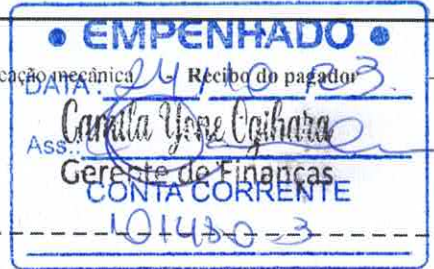 • EMPENHADO •
cação mecânica Recibo do pagador
DATA: 24/10/23
Camila Yone Ogihara
Ass.:
Gerente de Finanças
CONTA CORRENTE
101480-3